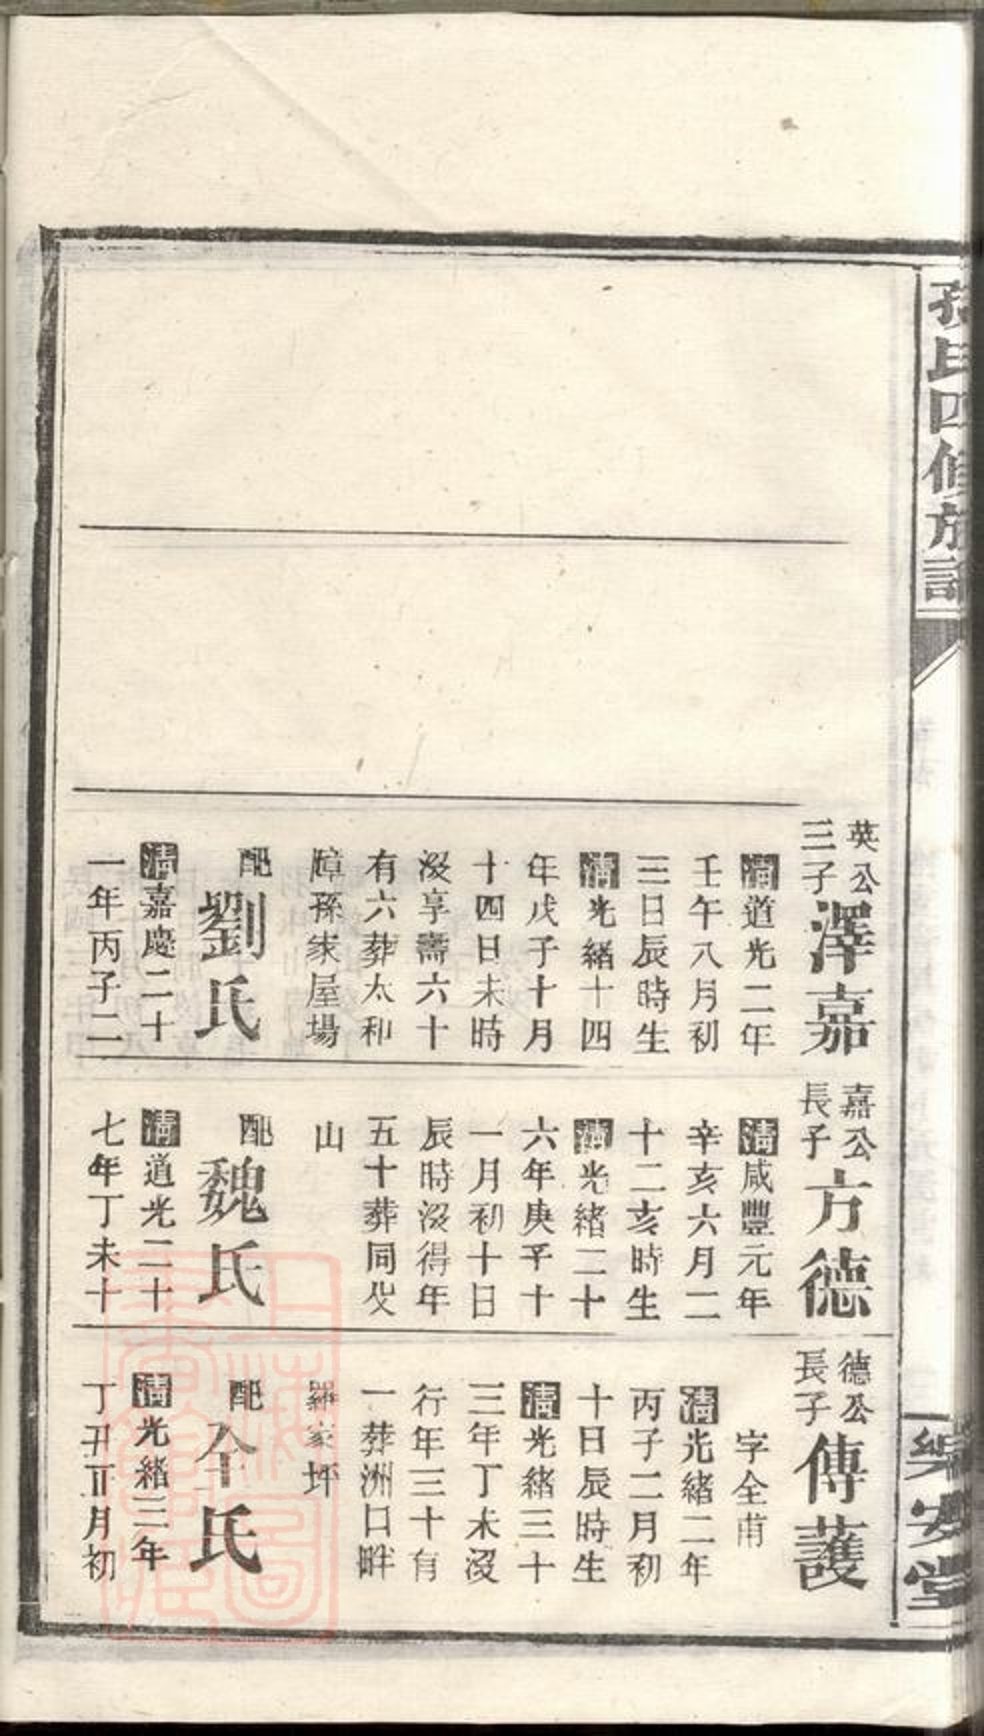 孫氏四修族譜
樂安堂
英公
三子
澤嘉
清道光二年
壬午八月初
三日辰時生
清光緒十四
年戊子十月
十四日未時
没享壽六十
有六葬太和
障孫家屋場
配
劉氏
清嘉慶二十
一年丙子二
嘉公
長子
方德
清咸豐元年
辛亥六月二
十二亥時生
清光緒二十
六年庚子十
一月初十日
辰時没得年
五十葬同父
山
配
魏氏
清道光二十
七年丁未十
德公
長子
傳護
字全甫
清光緒二年
丙子二月初
十日辰時生
清光緒三十
三年丁未没
行年三十有
一葬洲口畔
羅家坪
配
仝氏
清光緒三年
丁丑正月初
上海圖
書館藏